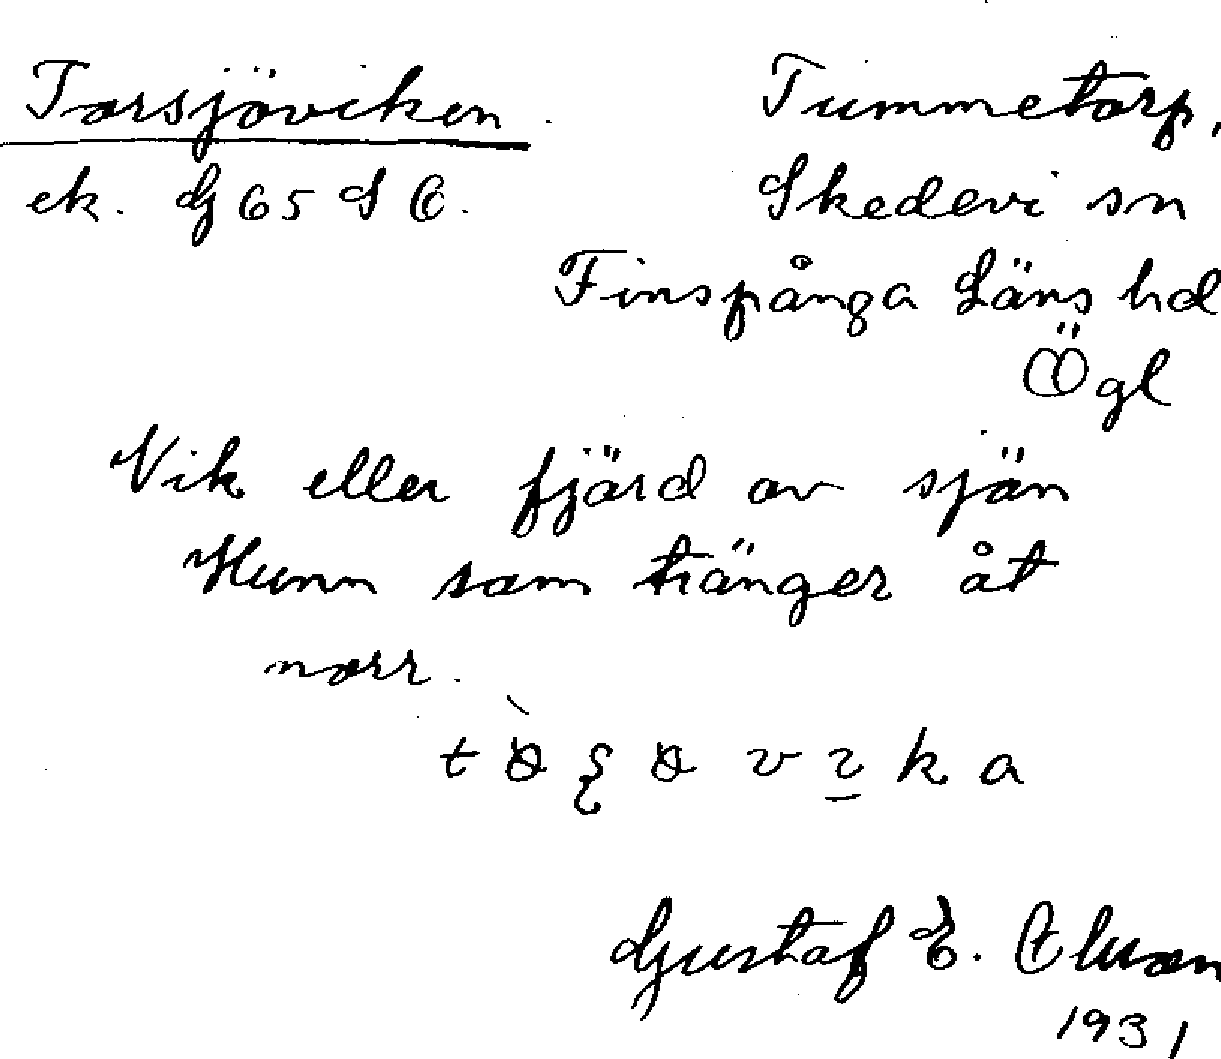 Torsjöviken
Tummetorp,
ek. G 65 S O.
Skedevi sn
Finspånga Läns hd
Ögl
Vik eller fjärd av sjön
Hunn som tränger åt
norr.
Gustaf E. Olsson
1931